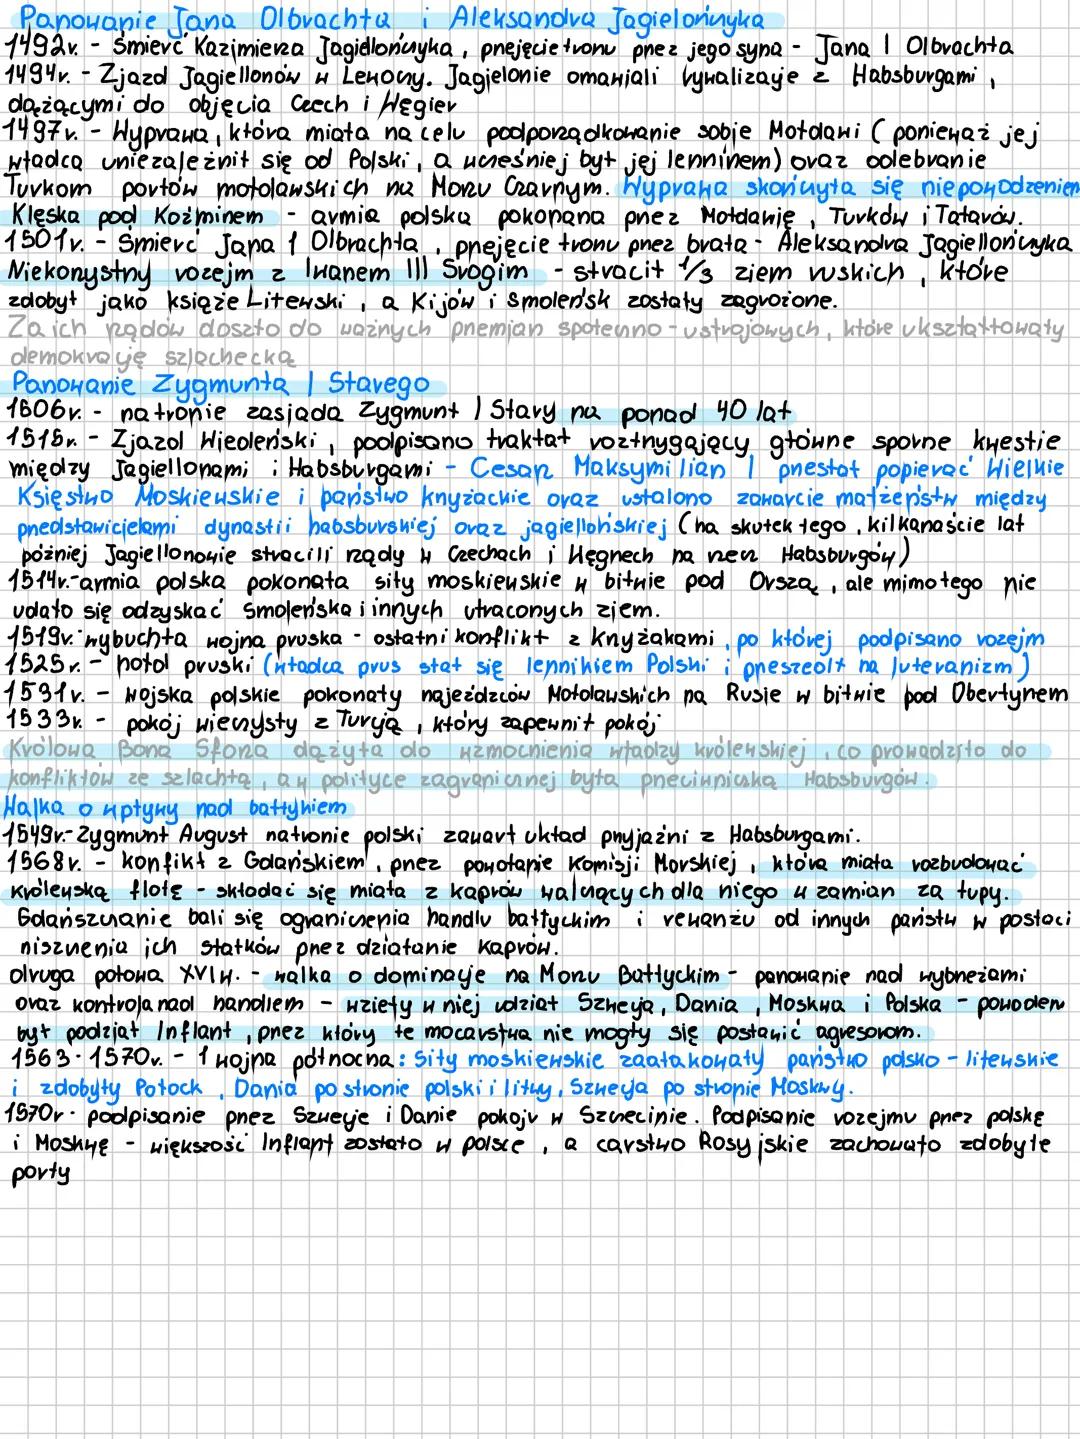 Panowanie Jana Olbrachta i Aleksandra Jagielończyka
1492r. - Śmierć Kazimierza Jagiellończyka, przejęcie tronu przez jego syna - Jana I Olbrachta
1494r. - Zjazd Jagiellonów w Lewoczy. Jagielonie omawiali rywalizację z Habsburgami,
dążącymi do objęcia Czech i Węgier
1497r. - Wyprawa, która miała na celu podporządkowanie sobie Mołdawi (ponieważ jej
władca uniezależnił się od Polski, a wcześniej był jej lenninem) oraz odebranie
Turkom portów mołdawskich na Morzu Czarnym. Wyprawa skończyła się niepowodzeniem
Klęska pod Koźminem - armia polska pokonana przez Mołdawię, Turków i Tatarów.
1501r. - Śmierć Jana I Olbrachta, przejęcie tronu przez brata - Aleksandra Jagiellończyka
Niekorzystny rozejm z Iwanem III Srogim - stracił 1/3 ziem ruskich, które
zdobył jako książe Litewski, a Kijów i Smoleńsk zostały zagrożone.
Za ich rządów doszło do ważnych przemian społeczno-ustrojowych, które ukształtowały
demokrację szlachecką
Panowanie Zygmunta I Starego
1506r. - na tronie zasiada Zygmunt I Stary na ponad 40 lat
1515r. - Zjazd Wiedeński, podpisano traktat roztrzygający główne sporne kwestie
między Jagiellonami i Habsburgami - Cesarz Maksymilian I przestał popierać Wielkie
Księstwo Moskiewskie i państwo krzyżackie oraz ustalono zawarcie małżeństw między
przedstawicielami dynastii habsburskiej oraz jagiellońskiej (na skutek tego, kilkanaście lat
później Jagiellonowie stracili rządy w Czechach i Węgrzech na rzecz Habsburgów)
1514r.-armia polska pokonała siły moskiewskie w bitwie pod Orszą, ale mimo tego nie
udało się odzyskać Smoleńska i innych utraconych ziem.
1519r.-wybuchła wojna pruska - ostatni konflikt z Krzyżakami, po której podpisano rozejm
1525r. - hołd pruski (władca prus stał się lennikiem Polski i przeszedł na luteranizm)
1531r. - wojska polskie pokonały najeźdzców Mołdawskich na Rusie w bitwie pod Obertynem
1533r. - pokój wieczysty z Turcją, który zapewnił pokój
Królowa Bona Sforza dążyła do wzmocnienia władzy królewskiej, co prowadziło do
konfliktów ze szlachtą, a w polityce zagranicznej była przeciwniczką Habsburgów.
Walka o wpływy nad bałtykiem
1549r.-Zygmunt August na tronie polski zawarł układ przyjaźni z Habsburgami.
1568r. - konfikt z Gdańskiem, przez powołanie Komisji Morskiej, która miała rozbudować
królewską flotę - składać się miała z kaprów walczących dla niego w zamian za łupy.
Gdańszczanie bali się ograniczenia handlu bałtyckim i rewanżu od innych państw w postaci
niszczenia ich statków przez działanie kaprów.
druga połowa XVIw. - walka o dominację na Morzu Bałtyckim - panowanie nad wybrzeżami
oraz kontrola nad handlem - wzięły w niej udział Szwecja, Dania, Moskwa i Polska - powodem
był podział Inflant, przez który te mocarstwa nie mogły się postawić agresorom.
1563-1570r. - 1 wojna północna: siły moskiewskie zaatakowały państwo polsko - litewskie
i zdobyły Połock, Dania po stronie polski i litwy, Szwecja po stronie Moskwy.
1570r - podpisanie przez Szwecję i Danię pokoju w Szczecinie. Podpisanie rozejmu przez polskę
i Moskwę - większość Inflant zostało w polsce, a carstwo Rosyjskie zachowało zdobyte
porty